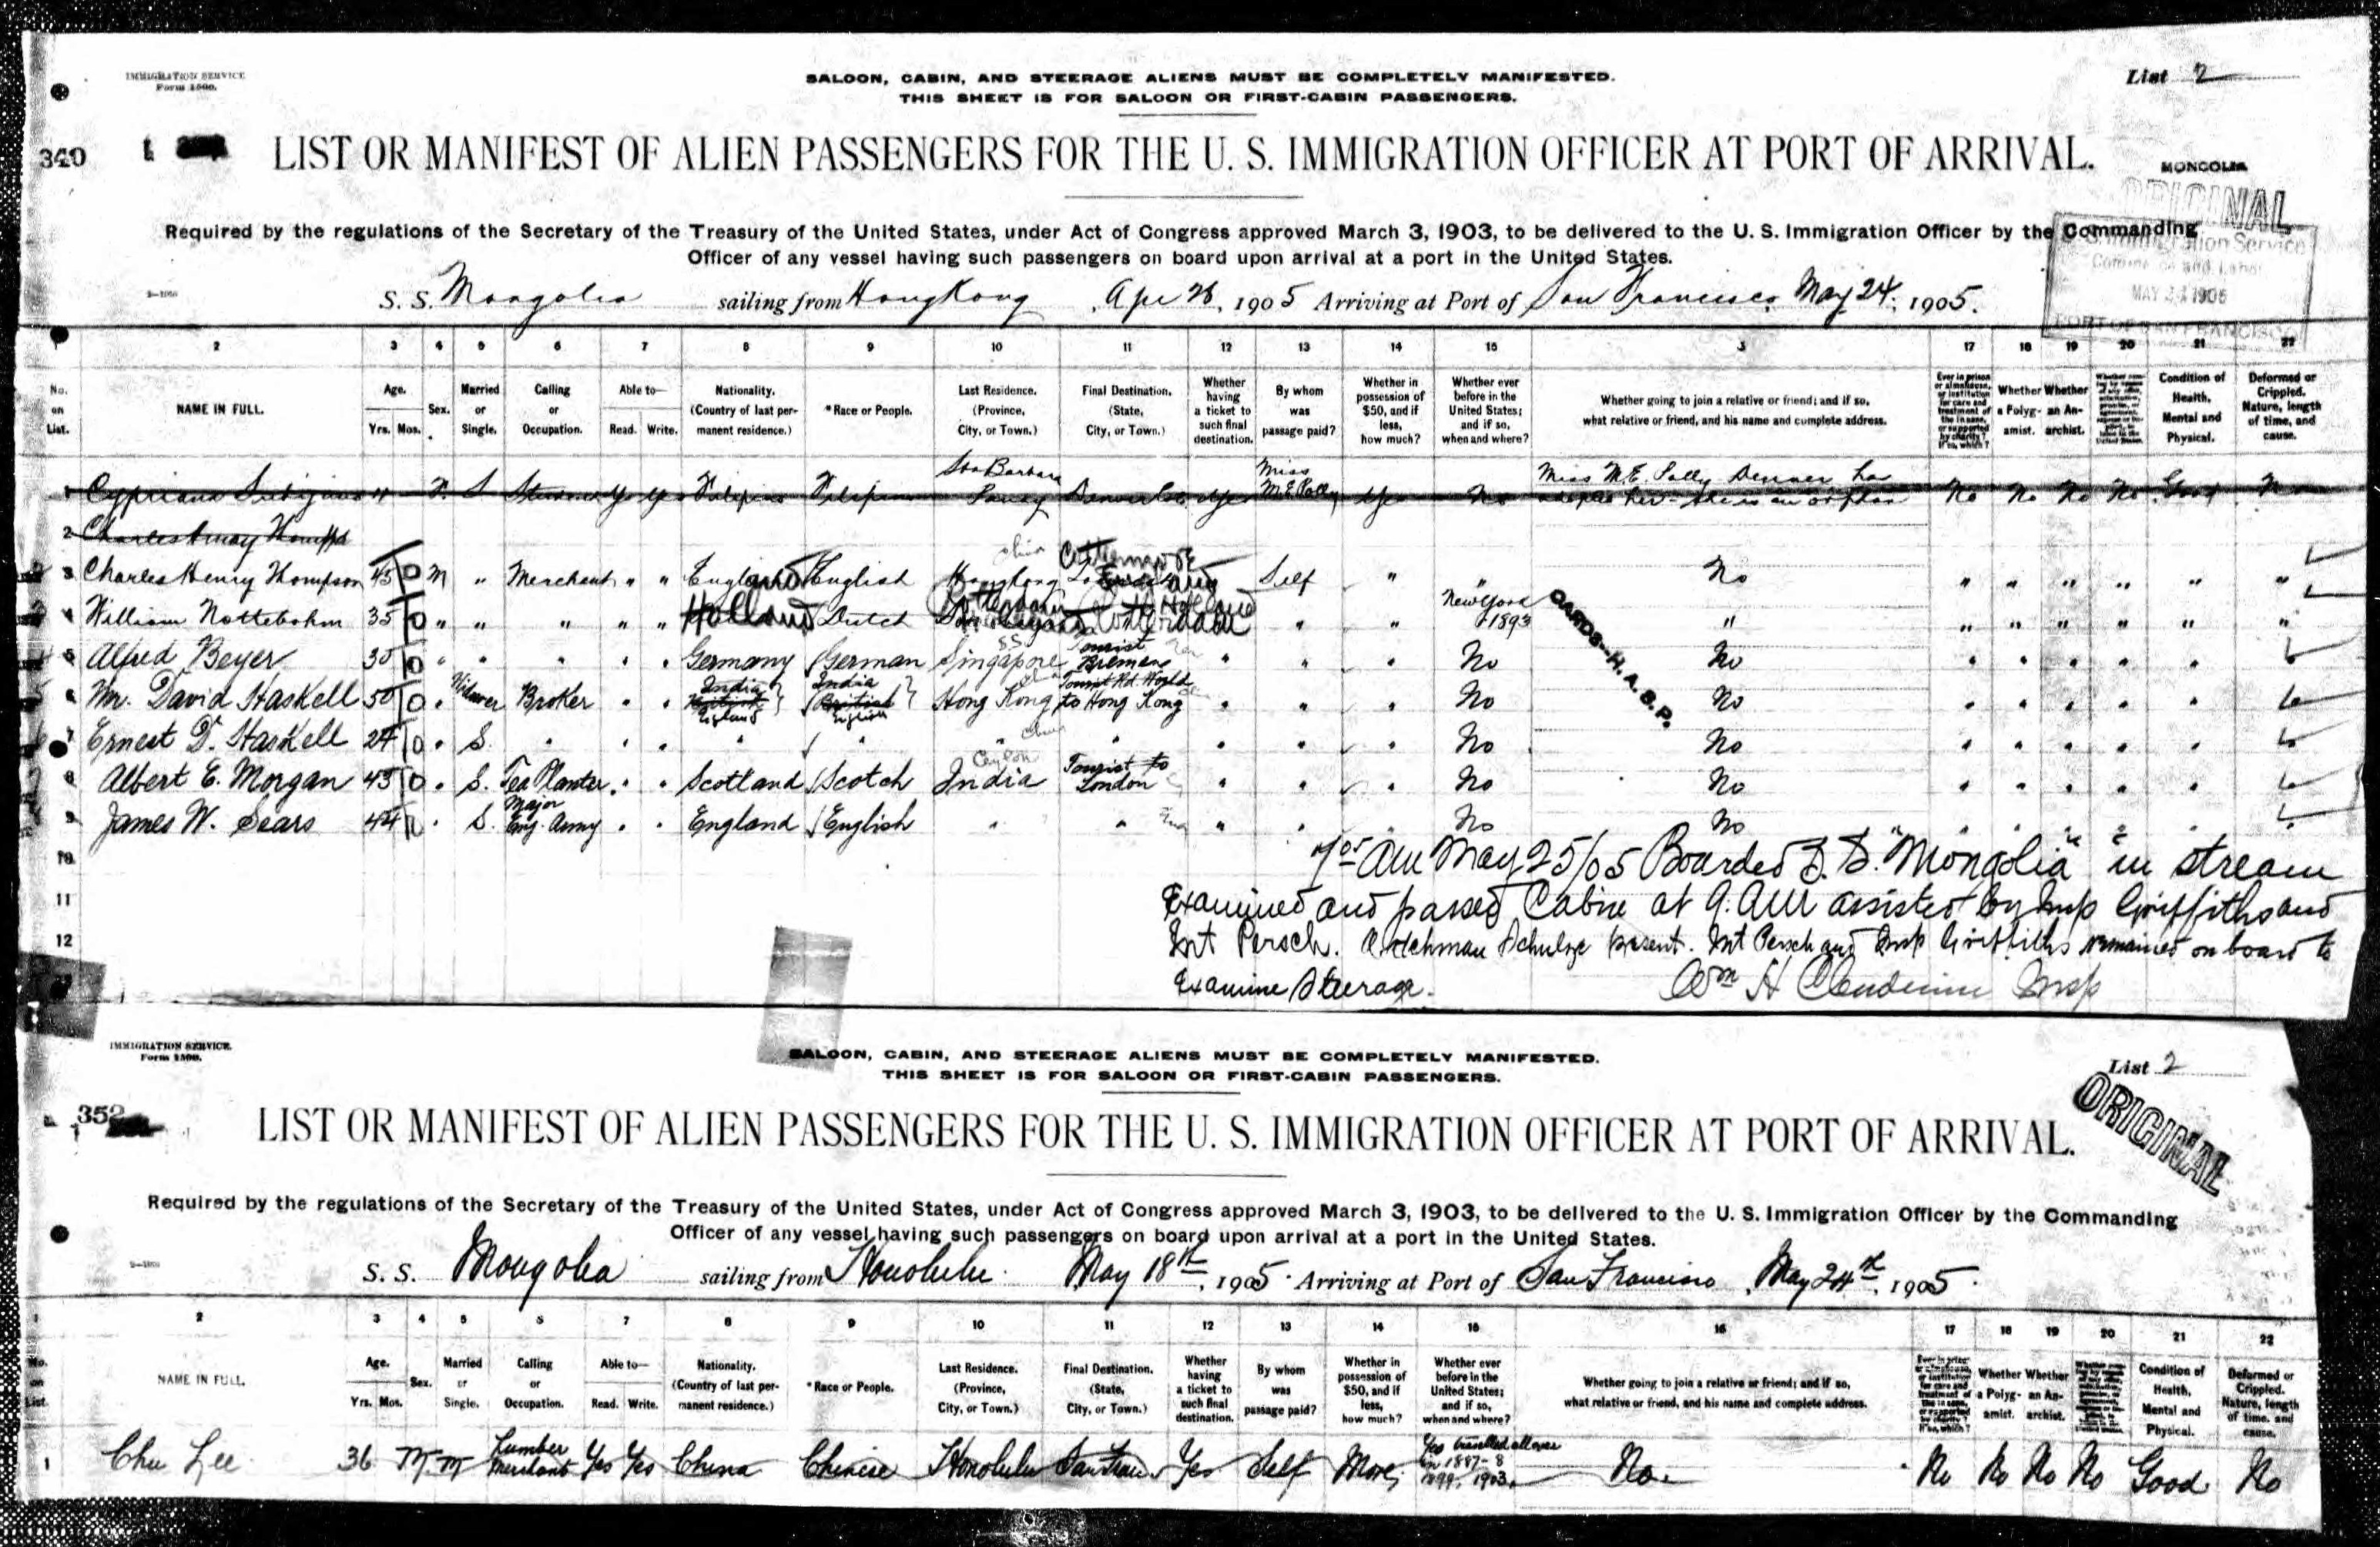 IMMIGRATION SERVICE
Form 1500.
SALOON, CABIN, AND STEERAGE ALIENS MUST BE COMPLETELY MANIFESTED.
THIS SHEET IS FOR SALOON OR FIRST-CABIN PASSENGERS.
List 2
340
LIST OR MANIFEST OF ALIEN PASSENGERS FOR THE U. S. IMMIGRATION OFFICER AT PORT OF ARRIVAL.
MONGOLIA
ORIGINAL
Required by the regulations of the Secretary of the Treasury of the United States, under Act of Congress approved March 3, 1903, to be delivered to the U. S. Immigration Officer by the Commanding
Officer of any vessel having such passengers on board upon arrival at a port in the United States.
S. S. Mongolia sailing from HongKong, Apr 26, 1905 Arriving at Port of San Francisco, May 24, 1905.
2 3 4 5 6 7 8 9 10 11 12 13 14 15 17 18 19 20 21 22
No. on List. NAME IN FULL. Age. Yrs. Mos. Sex. Married or Single. Calling or Occupation. Able to— Read. Write. Nationality. (Country of last permanent residence.) *Race or People. Last Residence. (Province, City, or Town.) Final Destination. (State, City, or Town.) Whether having a ticket to such final destination. By whom was passage paid? Whether in possession of $50, and if less, how much? Whether ever before in the United States; and if so, when and where? Whether going to join a relative or friend; and if so, what relative or friend, and his name and complete address. Whether a Polygamist. Whether an Anarchist. Condition of Health, Mental and Physical. Deformed or Crippled. Nature, length of time, and cause.
1 Cypriana 11 F. S Yes Yes Filipino Filipino Sta Barbara Panay Denver Col. Yes Miss M.E. Polly Yes No Miss M.E. Polly Denver has adopted her - she is an orphan No No No No Good No
2 Charles
3 Charles Henry Thompson 45 M " Merchant " " England English HongKong England Self " " No " " " " " "
4 William Nottebohm 35 " " " " " Holland Dutch " " New York 1893 " " " " " " "
5 Alfred Beyer 30 " " " " " Germany German Singapore Tourist Bremen " " " No No " " " " " "
6 Mr. David Haskell 50 " Widower Broker " " India British England India British English Hong Kong Tourist Rd. World to Hong Kong " " " No No " " " " "
7 Ernest D. Haskell 24 " S. " " " " " " " " " " No No " " " " "
8 Albert E. Morgan 43 " S. Tea Planter " " Scotland Scotch Ceylon India Tourist to London " " " No No " " " " "
9 James W. Sears 44 " S. Major Eng. Army " " England English " " " " " No No " " " " "
CARDS—H.A.S.P.
10
11
12
7 05 AM May 25/05 Boarded S.S. "Mongolia" in stream
Examined and passed Cabin at 9. AM assisted by Insp Griffiths and
Int Persch. Watchman Schulze present. Int Persch and Insp Griffiths remained on board to
Examine Steerage.
Wm H Clendenin Insp
IMMIGRATION SERVICE.
Form 1500.
SALOON, CABIN, AND STEERAGE ALIENS MUST BE COMPLETELY MANIFESTED.
THIS SHEET IS FOR SALOON OR FIRST-CABIN PASSENGERS.
List 2
ORIGINAL
352
LIST OR MANIFEST OF ALIEN PASSENGERS FOR THE U. S. IMMIGRATION OFFICER AT PORT OF ARRIVAL.
Required by the regulations of the Secretary of the Treasury of the United States, under Act of Congress approved March 3, 1903, to be delivered to the U. S. Immigration Officer by the Commanding
Officer of any vessel having such passengers on board upon arrival at a port in the United States.
S. S. Mongolia sailing from Honolulu. May 18th, 1905 Arriving at Port of San Francisco, May 24th, 1905.
1 2 3 4 5 6 7 8 9 10 11 12 13 14 15 16 17 18 19 20 21 22
No. on List. NAME IN FULL. Age. Yrs. Mos. Sex. Married or Single. Calling or Occupation. Able to— Read. Write. Nationality. (Country of last permanent residence.) *Race or People. Last Residence. (Province, City, or Town.) Final Destination. (State, City, or Town.) Whether having a ticket to such final destination. By whom was passage paid? Whether in possession of $50, and if less, how much? Whether ever before in the United States; and if so, when and where? Whether going to join a relative or friend; and if so, what relative or friend, and his name and complete address. Whether a Polygamist. Whether an Anarchist. Condition of Health, Mental and Physical. Deformed or Crippled. Nature, length of time, and cause.
1 Chu Lee 36 M M Lumber Merchant Yes Yes China Chinese Honolulu San Fran Yes Self More Yes travelled all over in 1887-8 1899, 1903. No. No No No No Good No